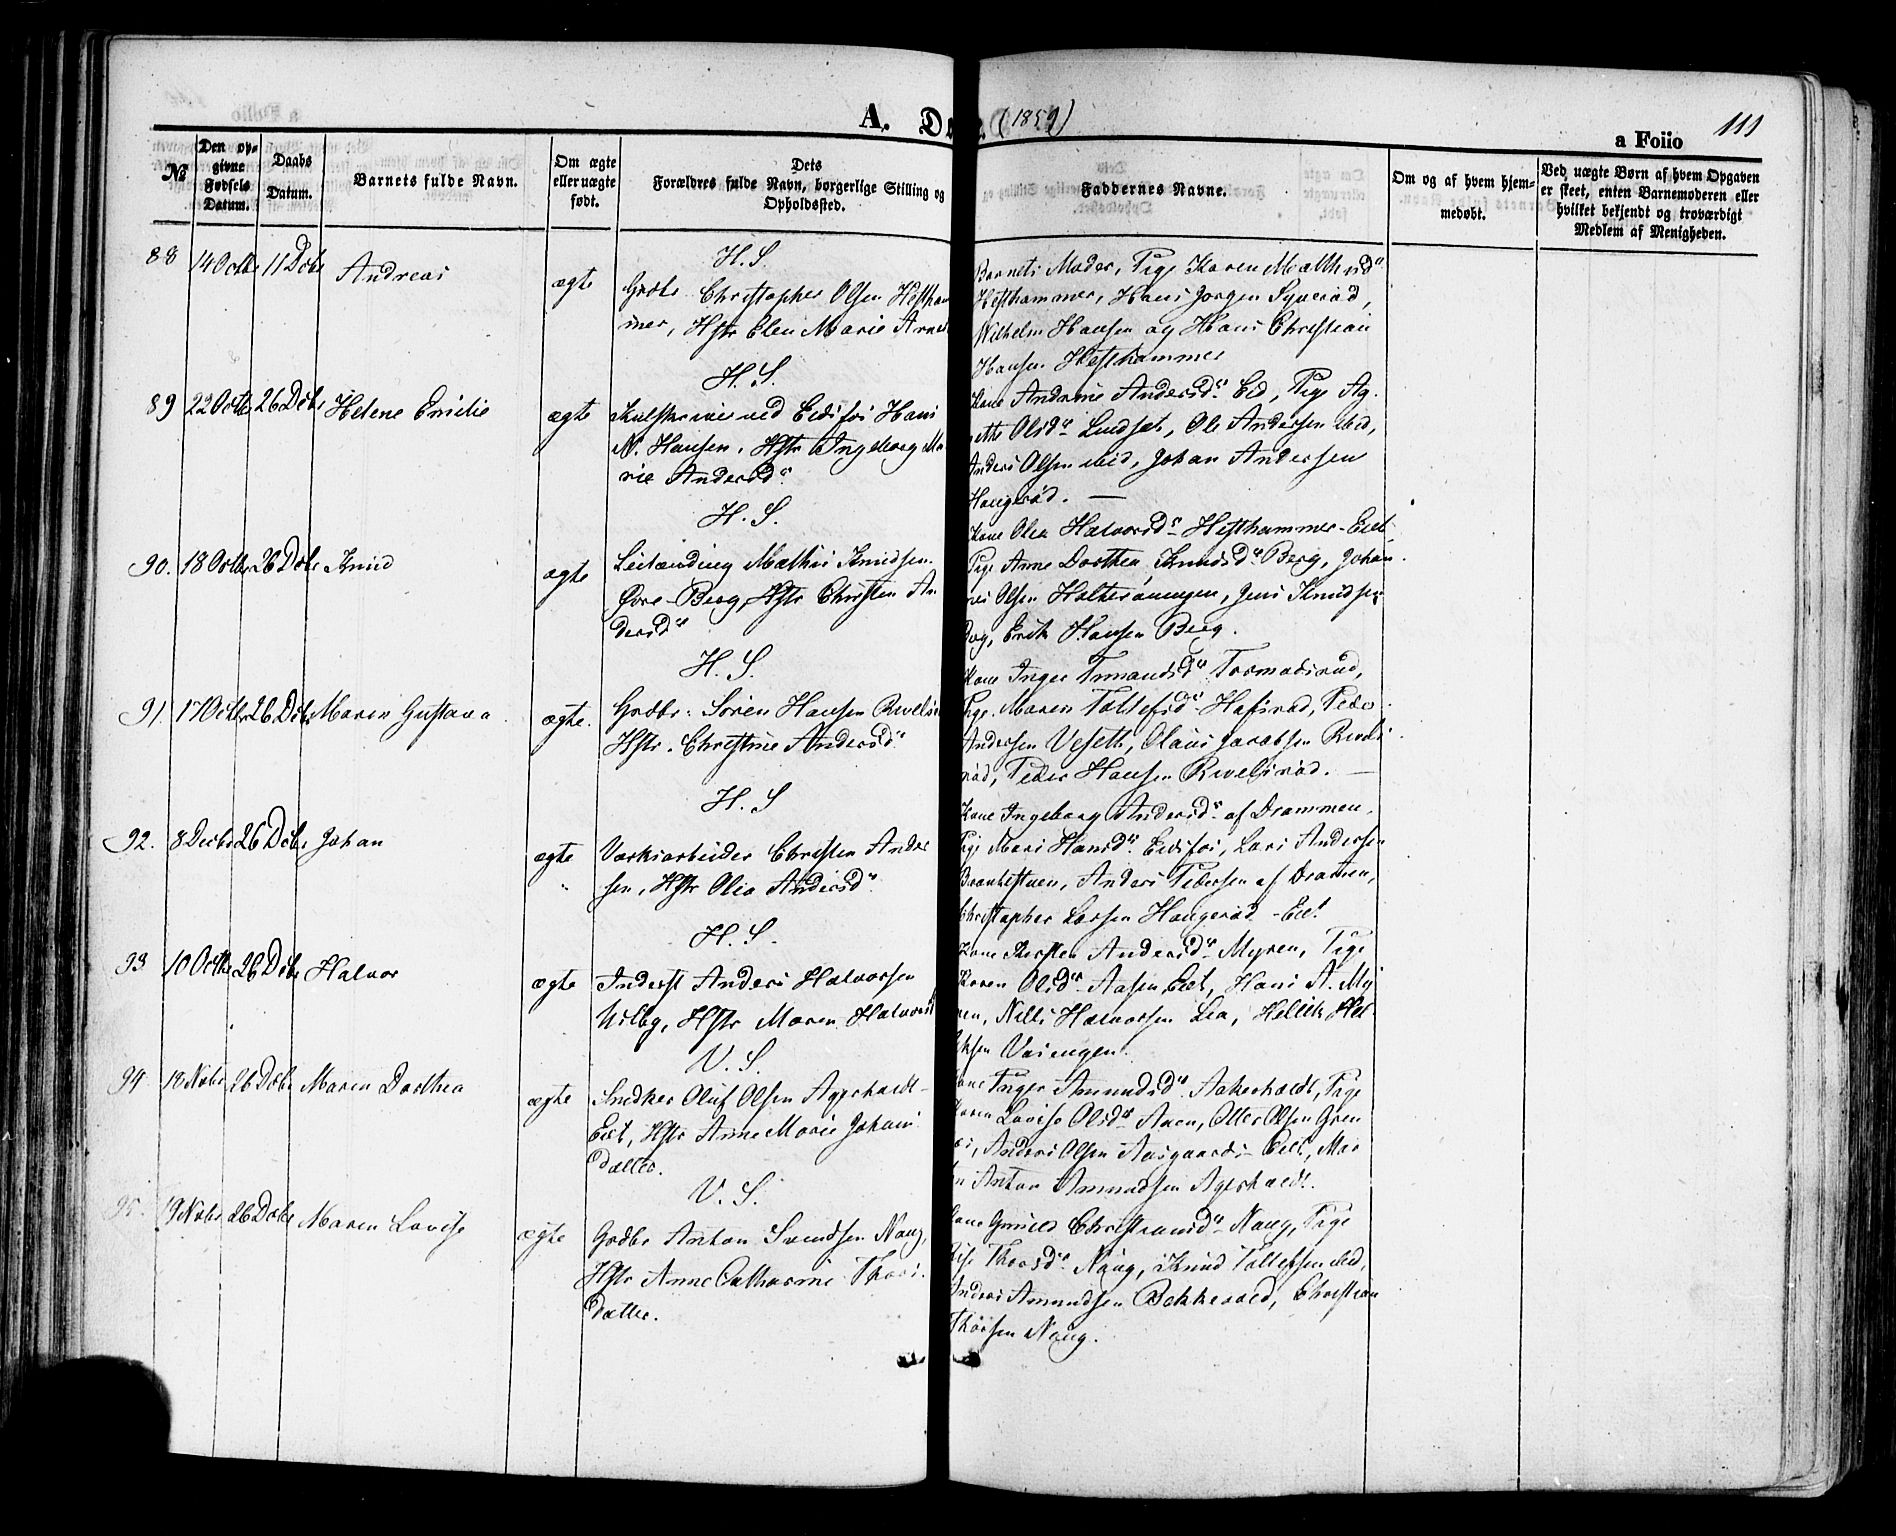 A. D (1859)
a Foiio 111
№
Den op-
givne
Fødsels
Datum.
Daabs
Datum.
Barnets fulde Navn.
Om ægte
eller uægte
født.
Dets
Forældres fulde Navn, borgerlige Stilling og
Opholdssted.
Faddernes Navne.
Om og af hvem hjem-
medøbt.
Ved uægte Børn af hvem Opgaven
er skeet, enten Barnemoderen eller
hvilket bekjendt og troværdigt
Medlem af Menigheden.
88 14 Octbr 11 Dcbr Andreas ægte
H. S.
Grdbr Christopher Olsen Hestham
mer, Hstr Elen Marie Arne
Barnets Moder, Pige Karen Mathisd.
Hesthammer, Hans Jørgen
Wilhelm Hansen og Hans Christian
Hansen Hesthammer
89 22 Octbr 26 Dcbr Helene Emilie ægte
H. S.
ved Eidsfos Hans
N. Hansen, Hstr Ingeborg Ma
rie Andersd.
Kone Andrine Andersd. Eid, Pige Ag-
nette Olsd. Lindset, Ole Andersen ibid,
Anders Olsen ibid, Johan Andersen
Haugerød. —
90. 18 Octbr 26 Dcbr Knud ægte
H. S.
Leilænding Mathis Knudsen
Øvre-Berg, Hstr Christen An
dersd.
Kone Olea Halvorsd. Hesthammer-Eiet
Pige Anne Dorthea Knudsd. Berg, Johan
nes Olsen Jens Knudsen
Berg, Erik Hansen Berg.
91. 17 Octbr 26 Dcbr Maren Gustava ægte.
H. S.
Grdbr. Søren Hansen
Hstr. Christine Andersd.
Kone Inger
Pige. Maren Tollefsd. Peder
Andersen Veseth, Olaus Jacobsen
rød, Peder Hansen Rivelsrød. —
92. 8 Decbr 26 Dcbr Johan ægte
H. S
Værksarbeider Christen Ander
sen, Hstr Olia Andersd.
Kone Ingeborg Andersd. af Drammen,
Pige Mari Hansd. Eidsfos, Lars Andersen
Anders Pedersen af Dramen,
Christopher Larsen Haugerød-Eiet
93 10 Octbr 26 Dcbr Halvor ægte
H. S.
Inderst Anders Halvorsen
Hstr Maren Halvorsd
Kone Kirsten Andersd. Myren, Pige
Karen Olsd. Aasen Eiet, Hans A. My
ren, Nils Halvorsen Lea, Hellik Hel-
liksen
94. 18 Nobr 26 Dcbr Maren Dorthea ægte
V. S.
Snedker Oluf Olsen Agerholdt-
Eiet, Hstr Anne Marie Johans
datter.
Kone Inger Amundsd. Aakerholdt, Pige
Karen Lovise Olsd. Otter Olsen Gren
Anders Olsen Aasgaards-Eiet, Mar
Anton Amundsen Agerholdt.
95. 19 Nobr 26 Dcbr Maren Lovise ægte
V. S.
Grdbr Anton Svendsen Naug,
Hstr Anne Cathrine Thors
datter.
Kone Gunild Christiansd. Naug, Pige
Thorsd. Naug, Knud Tollefsen ibid,
Anders Amundsen Christian
Thorsen Naug.